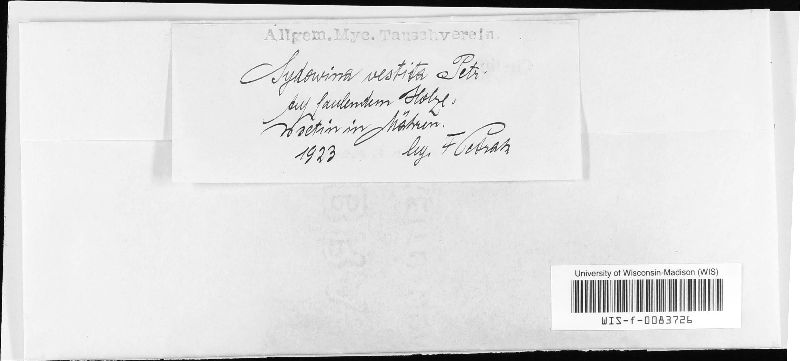 Allgem. Myc. Tauschverein.
Sydowina vestita Petr.
auf faulendem Holze.
Wsetin in Mähren.
1923 leg. F Petrak
University of Wisconsin-Madison (WIS)
WIS-f-0083726